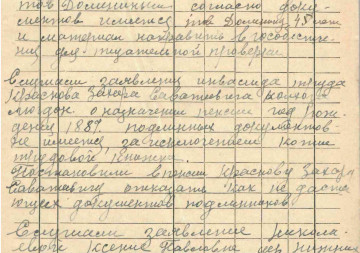 тов Доминики согласно доку-
ментов имеется тов Доминику 48 лет
и материал направить в госбезопас-
ния для тщательной проверки.
Слушали заявление инвалида труда
Краснова Захара Саватьевича
о назначении пенсии год рож-
дения 1889. подлинных документов
не имеется, за исключением копии
трудовой книжки.
Постановили в пенсии Краснову Захару
Саватьевичу отказать как не даете
ющих документов подлинников.
Слушали заявление Никола-
евой Ксении Павловны дер. Нижния